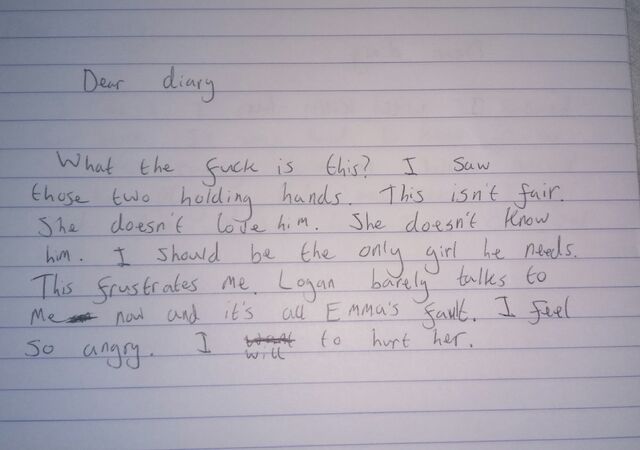 Dear diary
What the fuck is this? I saw
those two holding hands. This isn't fair.
She doesn't love him. She doesn't know
him. I should be the only girl he needs.
This frustrates me. Logan barely talks to
me now and it's all Emma's fault. I feel
so angry. I want to hurt her.
will